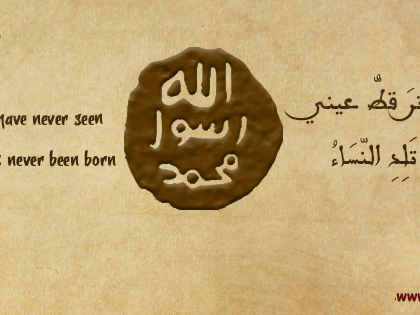 have never seen
never been born
الله
رسول
محمد
قطُّ عيني
تَلِدِ النِّسَاءُ
www